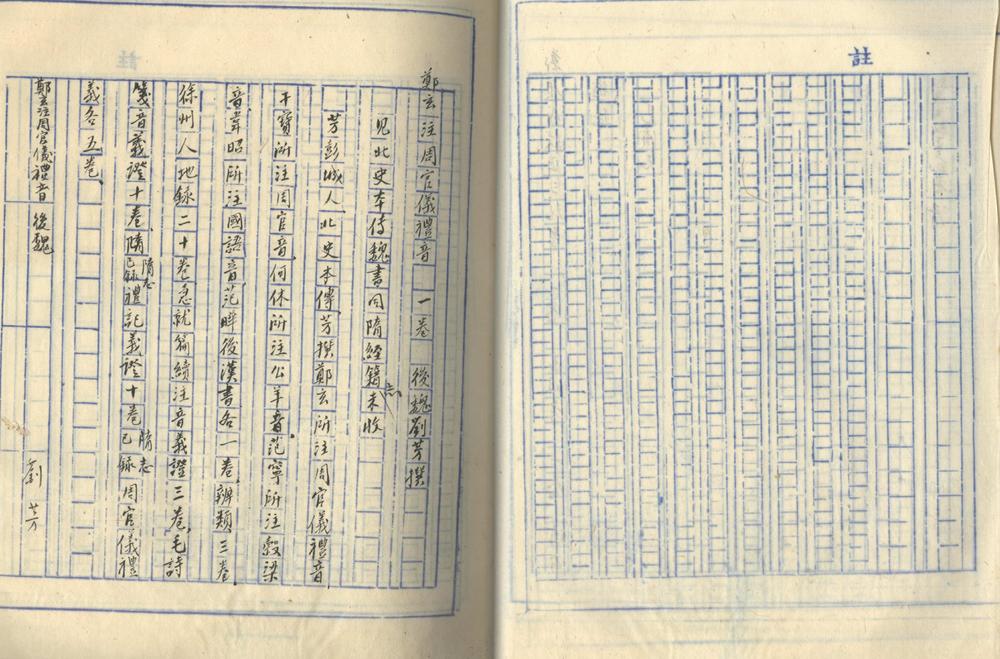 註
鄭玄注周官儀禮音　一卷　後魏劉芳撰
見北史本傳魏書同隋經籍志未收
芳彭城人北史本傳芳撰鄭玄所注周官儀禮音
干寶所注周官音何休所注公羊音范寧所注穀梁
音韋昭所注國語音范曄後漢書各一卷辨類三卷
徐州人地録二十卷急就篇續注音義證三卷毛詩
箋音義證十卷隋志已録禮記義證十卷隋志已録周官儀禮
義各五卷
鄭玄注周官儀禮音　後魏　劉芳